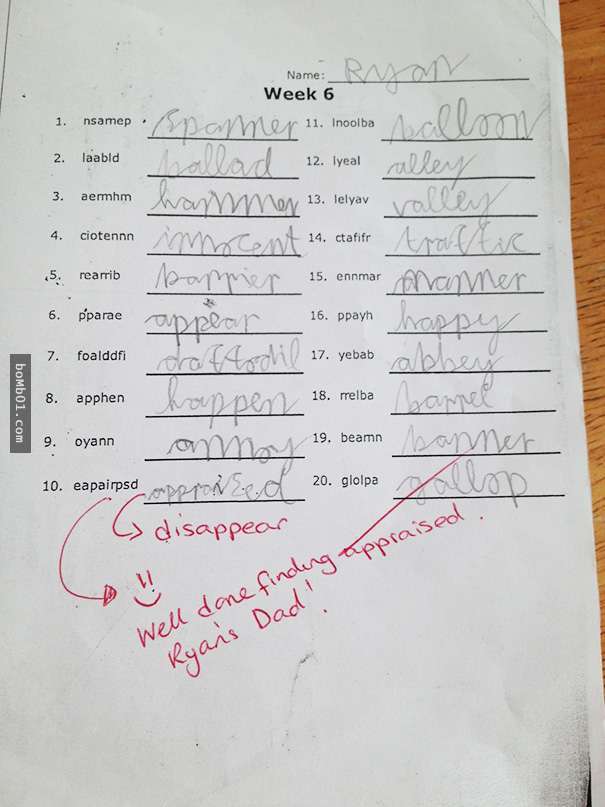 Name: Ryan
Week 6
1. nsamep spanner
2. laabld ballad
3. aermhm hammer
4. ciotennn innocent
5. rearrib barrier
6. pparae appear
7. foalddfi daffodil
8. apphen happen
9. oyann annoy
10. eapairpsd appraised
11. lnoolba balloon
12. lyeal alley
13. lelyav valley
14. ctafifr traffic
15. ennmar manner
16. ppayh happy
17. yebab abbey
18. rrelba barrel
19. beamn banner
20. glolpa gallop
disappear
Well done finding appraised.
Ryan's Dad!
boMb01.com